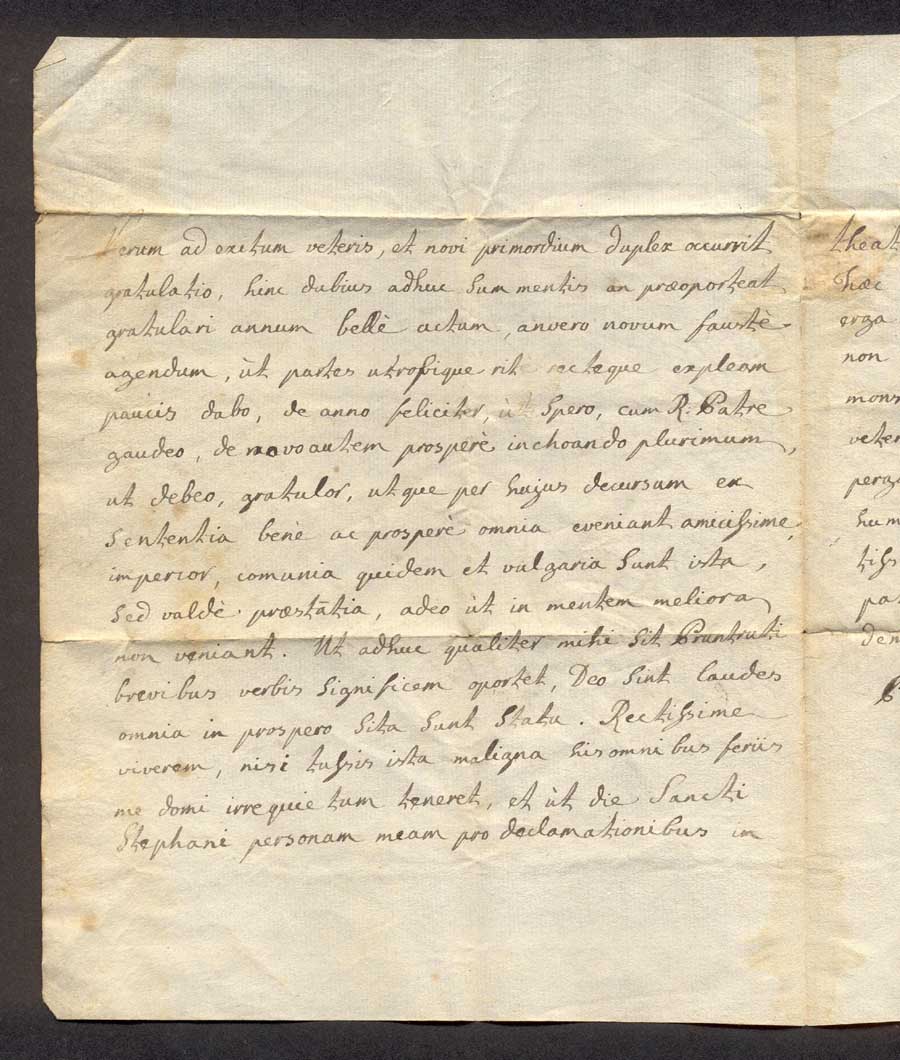 Verum ad exitum veteris, et novi primordium duplex occurrit
gratulatio, hinc dubius adhuc sum mentis an præoporteat
gratulari annum bellè actum, anvero novum faustè
agendum, ùt partes utrosique rite recteque expleam
paucis dabo, de anno feliciter, ùt spero, cum R. Patre
gaudeo, de novo autem prosperè inchoando plurimum,
ut debeo, gratulor, utque per hujus decursum ex
sententia benè ac prosperè omnia eveniant amicissime
imperior, comunia quidem et vulgaria sunt ista,
sed valdè præstātia, adeo ùt in mentem meliora
non veniant. Ut adhuc qualiter mihi sit Bruntruti
brevibus verbis significem oportet, Deo sint laudes
omnia in prospero sita sunt statu. Rectissime
viverem, nisi tussis ista maligna his omnibus feriis
me domi irrequietum teneret, et ùt die Sancti
Stephani personam meam pro declamationibus in
theat
hæc
erga
non
mons
veter
perga
hum
tiss
pat
dem